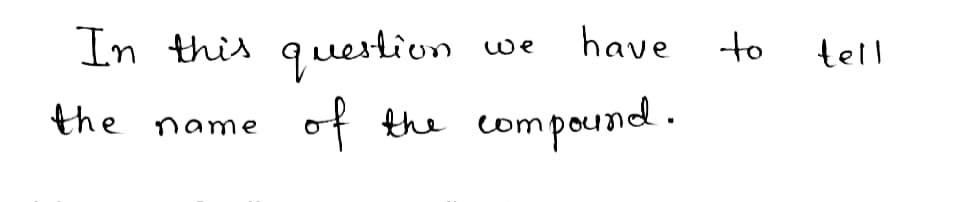 In this question we have to tell
the name of the compound.